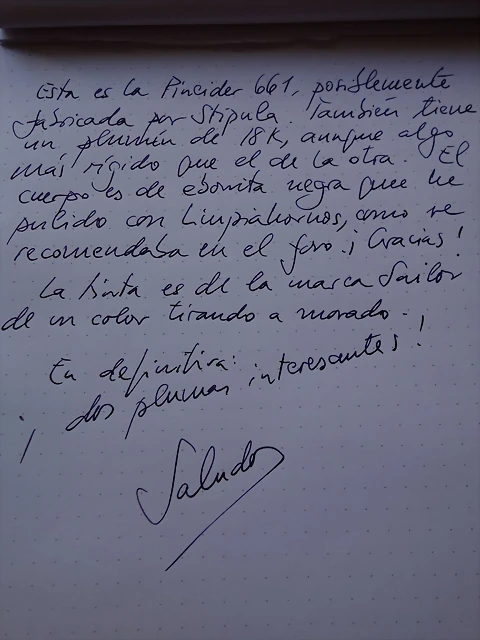 Esta es la Pineider 661, posiblemente
fabricada por Stipula. También tiene
un plumín de 18K, aunque algo
más rígido que el de la otra. El
cuerpo es de ebonita negra que he
pulido con limpiahornos, como se
recomendaba en el foro. ¡Gracias!
La tinta es de la marca Sailor
de un color tirando a morado.
En definitiva:
¡dos plumas interesantes!
Saludos